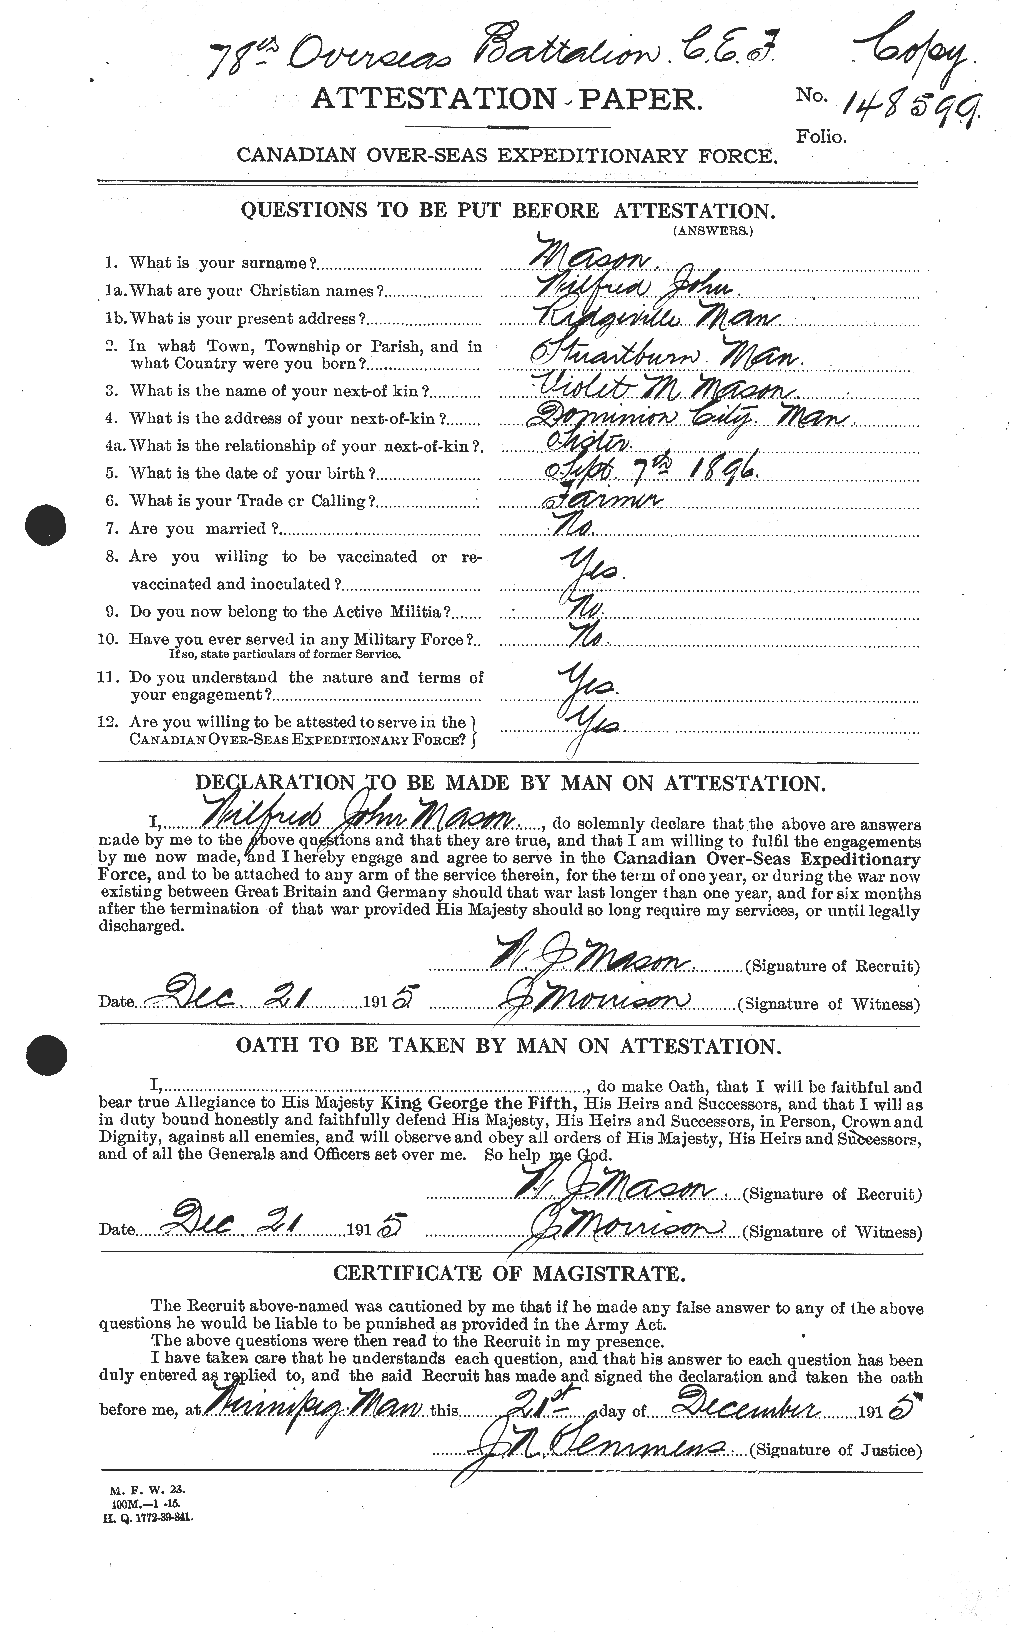 78th Overseas Battalion. C.E.F. Copy.
ATTESTATION PAPER. No. 148599.
Folio.
CANADIAN OVER-SEAS EXPEDITIONARY FORCE.
QUESTIONS TO BE PUT BEFORE ATTESTATION.
(ANSWERS.)
1. What is your surname?........ Mason.
1a. What are your Christian names?........ Wilfred John.
1b. What is your present address?........ Ridgeville Man
2. In what Town, Township or Parish, and in
what Country were you born?........ Stuartburn Man.
3. What is the name of your next-of kin?........ Violet M Mason
4. What is the address of your next-of-kin?........ Dominion City. Man.
4a. What is the relationship of your next-of-kin?. Sister.
5. What is the date of your birth?........ Sept. 7th 1896.
6. What is your Trade or Calling?........ Farmer
7. Are you married?........ No.
8. Are you willing to be vaccinated or re-
vaccinated and inoculated?........ Yes.
9. Do you now belong to the Active Militia?........ No.
10. Have you ever served in any Military Force?.. No.
If so, state particulars of former Service.
11. Do you understand the nature and terms of
your engagement?........ Yes.
12. Are you willing to be attested to serve in the }
CANADIAN OVER-SEAS EXPEDITIONARY FORCE? } Yes
DECLARATION TO BE MADE BY MAN ON ATTESTATION.
I, Wilfred John Mason....., do solemnly declare that the above are answers
made by me to the above questions and that they are true, and that I am willing to fulfil the engagements
by me now made, and I hereby engage and agree to serve in the Canadian Over-Seas Expeditionary
Force, and to be attached to any arm of the service therein, for the term of one year, or during the war now
existing between Great Britain and Germany should that war last longer than one year, and for six months
after the termination of that war provided His Majesty should so long require my services, or until legally
discharged.
W J Mason (Signature of Recruit)
Date Dec 21 1915 J Morrison (Signature of Witness)
OATH TO BE TAKEN BY MAN ON ATTESTATION.
I,........, do make Oath, that I will be faithful and
bear true Allegiance to His Majesty King George the Fifth, His Heirs and Successors, and that I will as
in duty bound honestly and faithfully defend His Majesty, His Heirs and Successors, in Person, Crown and
Dignity, against all enemies, and will observe and obey all orders of His Majesty, His Heirs and Successors,
and of all the Generals and Officers set over me. So help me God.
W J Mason (Signature of Recruit)
Date Dec 21 1915 J Morrison (Signature of Witness)
CERTIFICATE OF MAGISTRATE.
The Recruit above-named was cautioned by me that if he made any false answer to any of the above
questions he would be liable to be punished as provided in the Army Act.
The above questions were then read to the Recruit in my presence.
I have taken care that he understands each question, and that his answer to each question has been
duly entered as replied to, and the said Recruit has made and signed the declaration and taken the oath
before me, at Winnipeg Man this 21st day of December 1915
J N Semmens (Signature of Justice)
M. F. W. 23.
100M.—1 -15.
H. Q. 1772-39-841.